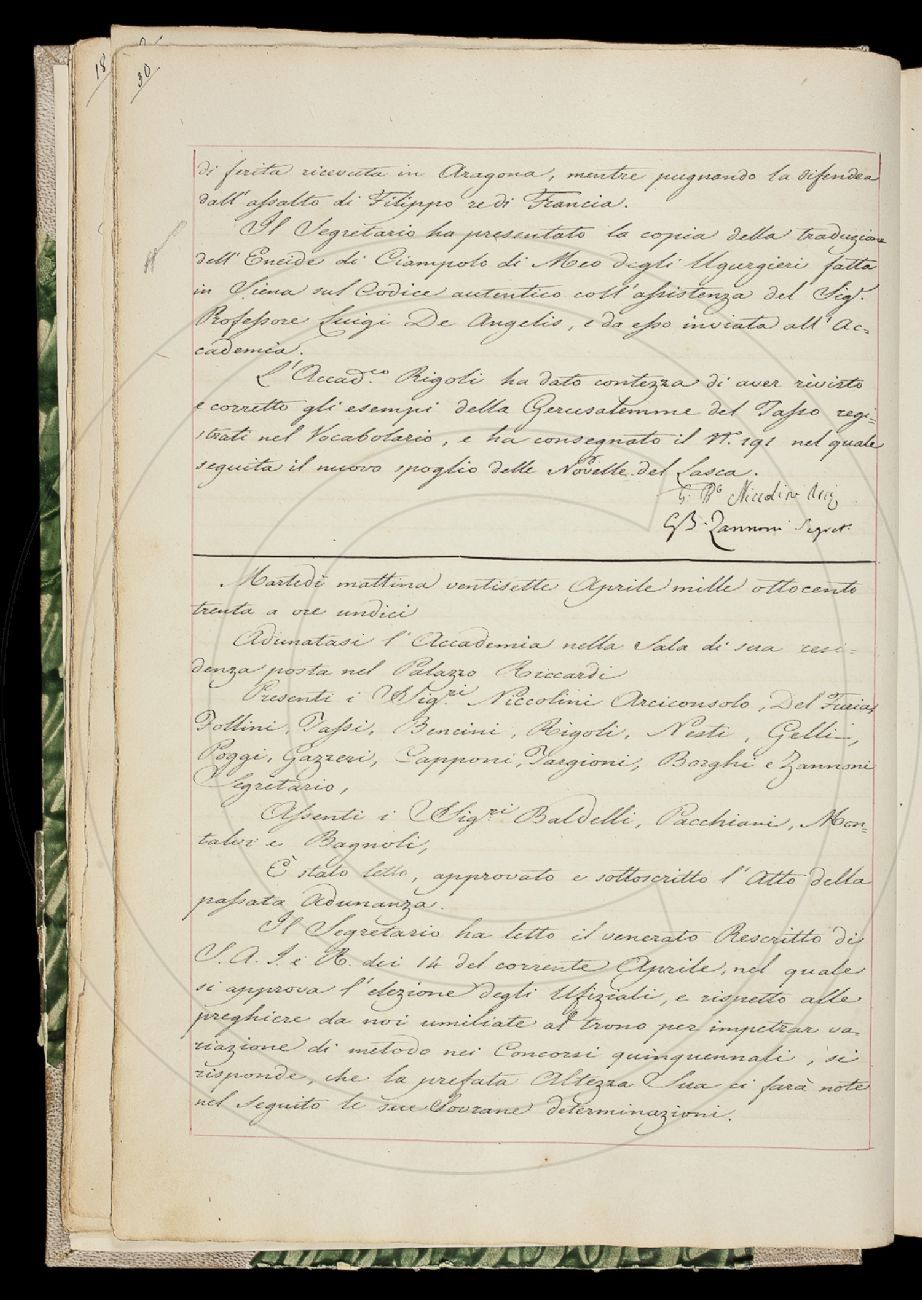 18
30
di ferita ricevuta in Aragona, mentre pugnando la difendea
dall' assalto di Filippo re di Francia.
Il Segretario ha presentato la copia della traduzione
dell' Eneide di Ciampolo di Meo degli Ugurgieri fatta
in Siena sul Codice autentico coll' assistenza del Sigr.
Professore Luigi De Angelis, e da esso inviata all' Ac=
cademia.
L' Accad.co Rigoli ha dato contezza di aver rivisto
e corretto gli esempi della Gerusalemme del Tasso regi=
strati nel Vocabolario, e ha consegnato il N.o 191 nel quale
seguita il nuovo spoglio delle Novelle del Lasca.
G. Ba Niccolini Arcic
GB. Zannoni Segret.
Martedì mattina ventisette Aprile mille ottocento
trenta a ore undici
Adunatasi l' Accademia nella Sala di sua resi=
denza posta nel Palazzo Riccardi
Presenti i SSig.ri Niccolini Arciconsolo, Del Furia,
Follini, Tassi, Bencini, Rigoli, Nesti, Gelli,
Poggi, Gazzeri, Capponi, Targioni, Borghi e Zannoni
Segretario,
Assenti i SSig.ri Baldelli, Pacchiani, Mon=
talvi e Bagnoli,
È stato letto, approvato e sottoscritto l' Atto della
passata Adunanza.
Il Segretario ha letto il venerato Rescritto di
S. A. I. e R. dei 14 del corrente Aprile, nel quale
si approva l' elezione degli Ufiziali, e rispetto alle
preghiere da noi umiliate al trono per impetrar va=
riazione di metodo nei Concorsi quinquennali, si
risponde, che la prefata Altezza Sua ci farà note
nel seguito le sue Sovrane determinazioni.